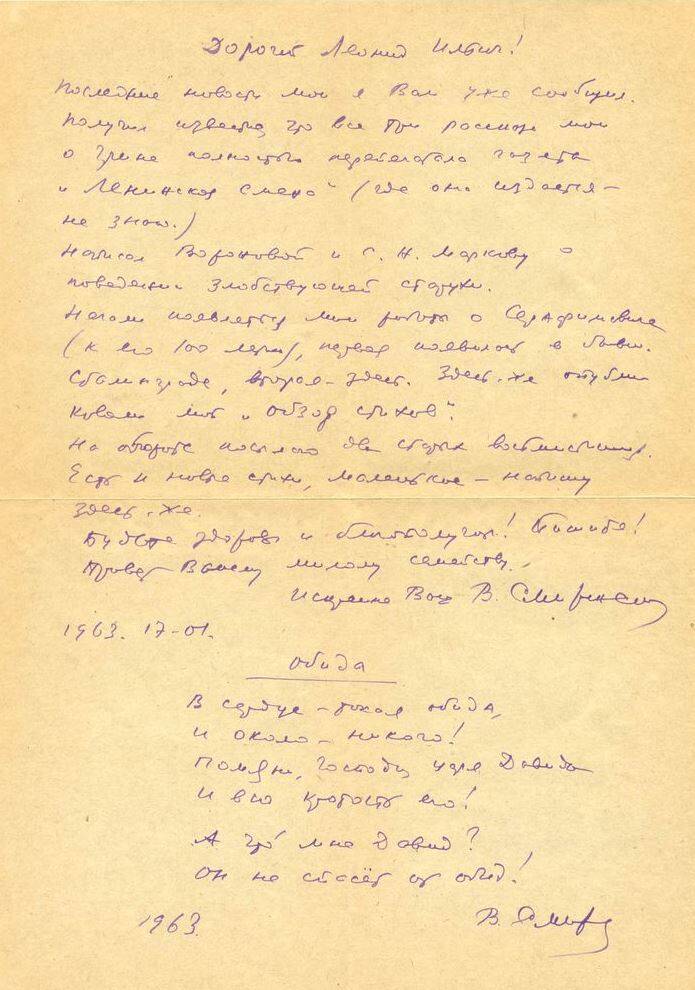 Дорогой Леонид Ильич!
Последние новости мои я Вам уже сообщил.
Получил известие, что все три рассказа мои
о Грине полностью перепечатала газета
„Ленинская смена" (где она издается –
не знаю.)
Написал Вороновой и С. Н. Маркову о
поведении злобствующей старухи.
Начали появляться мои работы о Серафимовиче
(к его 100 летию), первая появилась в бывш.
Сталинграде, вторая – здесь. Здесь-же опубли
ковали мой „обзор стихов".
На обороте посылаю два старых
Есть и новые стихи, маленькое – напишу
здесь-же.
Будьте здоровы и благополучны! Пишите!
Привет Вашему милому семейству.
Искренно Ваш В. Смиренский
1963. 17-01.
Обида
В сердце – такая обида,
И около – никого!
Помяни, Господи, царя Давида
И всю кротость его!
А что́ мне Давид?
Он не спасёт от обид!
1963. В. Смир